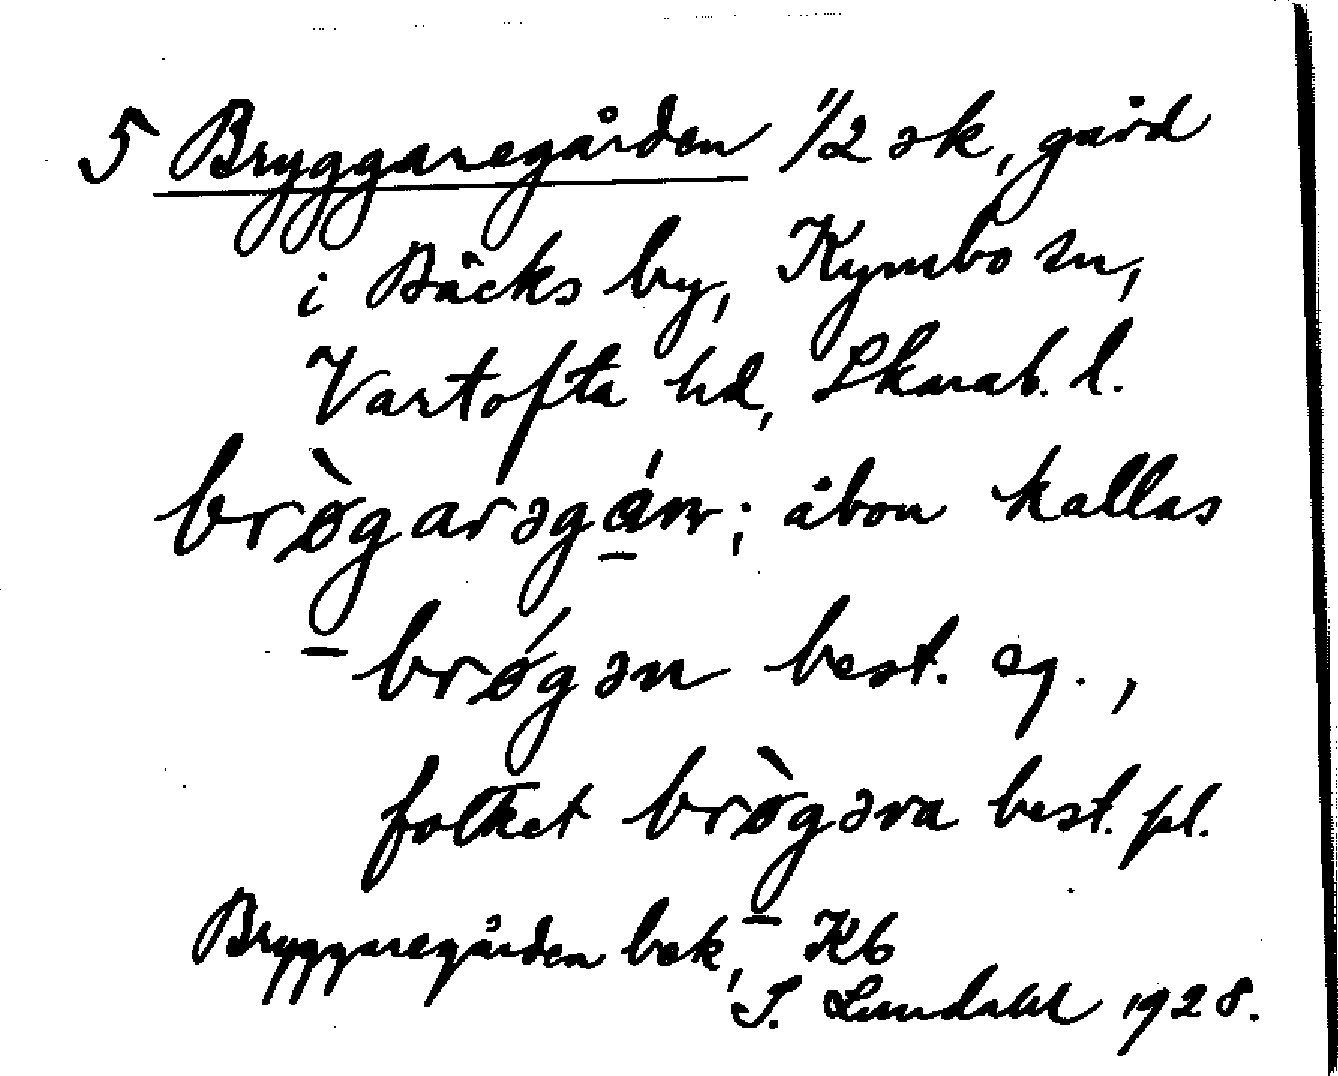 5 Bryggaregården 1/2 sk, gård
i Bäcks by, Kymbo sn,
Vartofta hd, Skarab. l.
brø̀garəgán; åbon kallas
brǿgən best. sg.,
folket brø̀gəra best. pl.
Bryggaregården bek, Kb
I. Lundahl 1928.